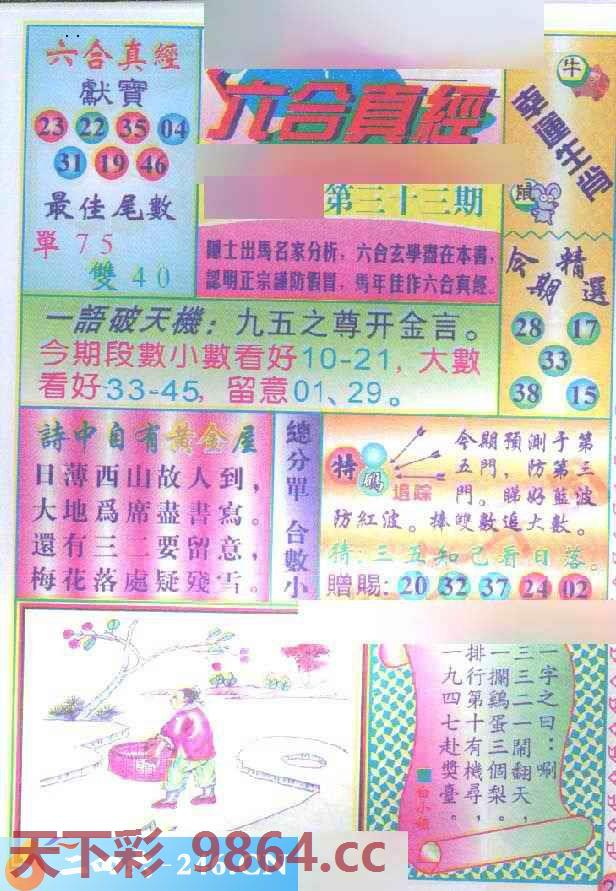 六合真經
獻寶
23 22 35 04
31 19 46
最佳尾數
單 75
雙 40
六合真經
第三十三期
隱士出馬名家分析，六合玄學盡在本書，
認明正宗謹防假冒，馬年佳作六合真經。
牛
幸運生肖
鼠
今期精選
28 17
33
38 15
一語破天機：九五之尊开金言。
今期段數小數看好10-21，大數
看好33-45，留意01、29。
詩中自有黃金屋
日薄西山故人到，
大地爲席盡書寫。
還有三二要留意，
梅花落處疑殘雪。
總分單 合數小
特碼
追踪
今期預測于第
五門，防第三
門。睇好藍波
防紅波。捧雙數追大數。
猜：三五知己看日落。
贈賜：20 32 37 24 02
一字之曰：唰
三三二一鬧翻天，
一擱鷄蛋三個梨。
排行第十有機尋，
一九四七赴獎臺。
白小姐
天下彩 9864.cc
246.CN